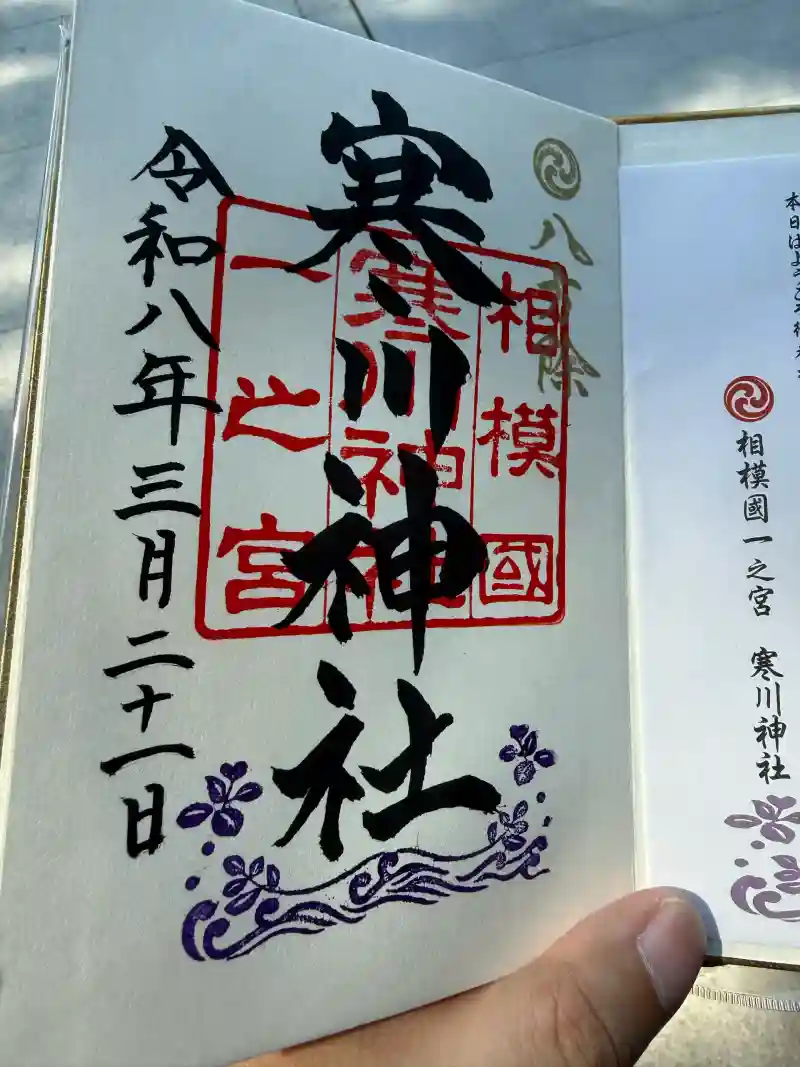 本日はようこそ
相模國一之宮　寒川神社
八方除
相模國
寒川神社
一之宮
寒川神社
令和八年三月二十一日